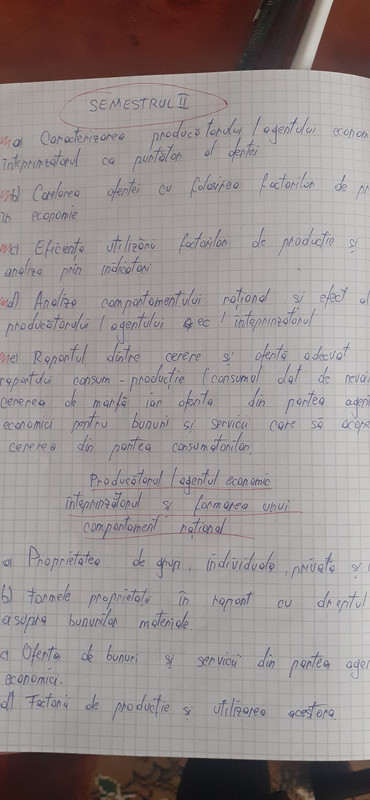 SEMESTRUL II
a) Caracterizarea producătorului / agentului econom
întreprinzătorul ca purtător al ofertei
b) Corelarea ofertei cu folosirea factorilor de pr
în economie
c) Eficiența utilizării factorilor de producție și
analiza prin indicatori
d) Analiza comportamentului rațional și efect al
producătorului / agentului ec / intreprinzătorul
e) Raportul dintre cerere și ofertă adecvat
raportului consum - producție (consumul dat de nevoi
cererea de marfă iar oferta din partea agen
economici pentru bunuri și servicii care să acope
cererea din partea consumatorilor.
Producătorul / agentul economic
întreprinzătorul și formarea unui
comportament rațional
a) Proprietatea de grup, individuală, privată și
b) Formele proprietății în raport cu dreptul
asupra bunurilor materiale
c) Oferta de bunuri și servicii din partea age
economici.
d) Factorii de producție și utilizarea acestora